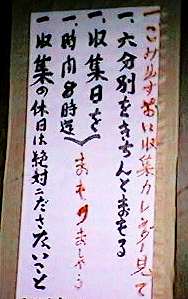 一ごみ出す前に収集カレンダー見て
一、六分別をきちんとまもる
一、収集日を
一、時間8時迄
まもりましょう
一収集の休日は絶対ニださないこと